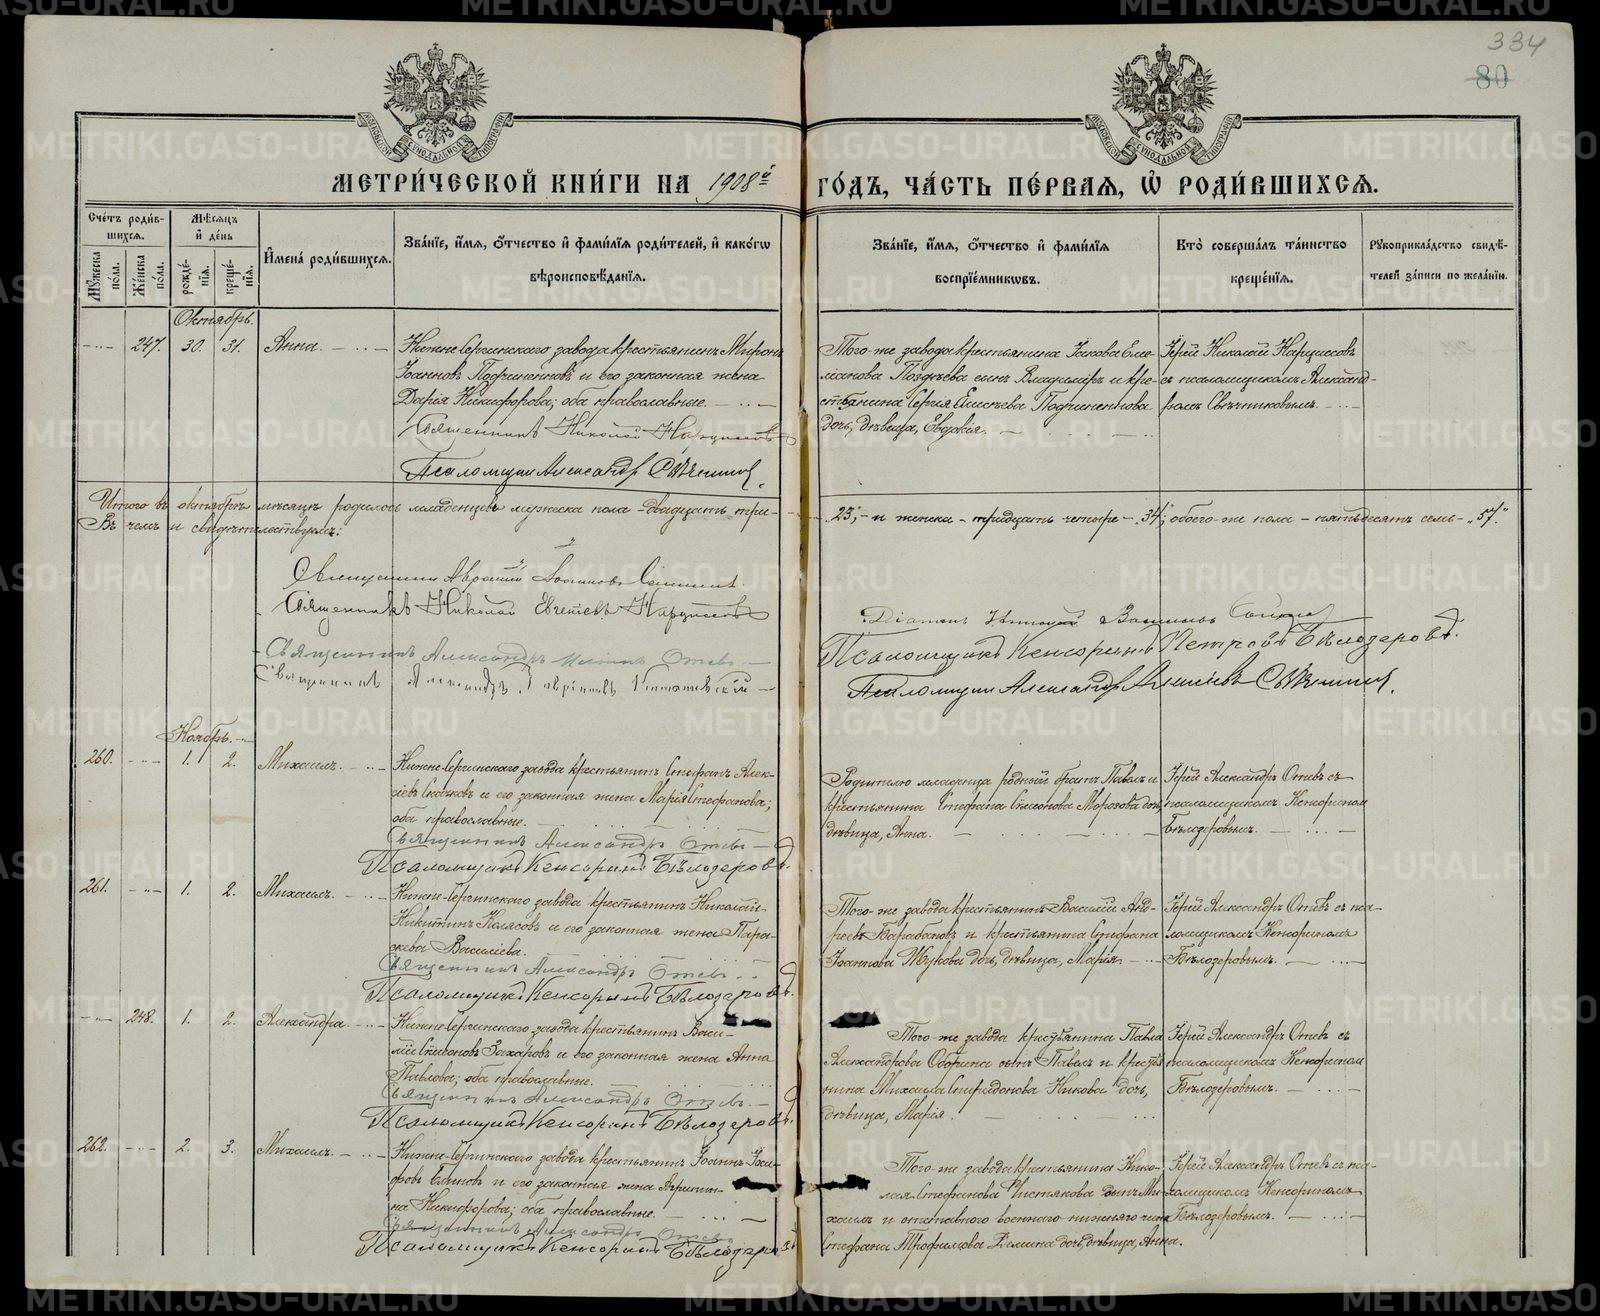 334
80
МОСКОВСКОЙ СУНОДАЛЬНОЙ ТИПОГРАФІИ
МОСКОВСКОЙ СУНОДАЛЬНОЙ ТИПОГРАФІИ
МЕТРИ́ЧЕСКОЙ КНИ́ГИ НА 1908й ГО́ДЪ, ЧА́СТЬ ПЕ́РВАѦ, Ѡ҆ РОДИ́ВШИХСѦ.
Сче́тъ роди́вшихсѧ.
Мꙋ́жеска по́ла.
Же́нска по́ла.
Мѣ́сѧцъ и҆ де́нь
рожде́нїѧ.
креще́нїѧ.
И҆мена̀ роди́вшихсѧ.
Зва́нїе, и҆́мѧ, ѻ҆́тчество и҆ фами́лїѧ роди́телей, и҆ како́гѡ вѣроисповѣ́данїѧ.
Зва́нїе, и҆́мѧ, ѻ҆́тчество и҆ фами́лїѧ воспрїе́мникѡвъ.
Кто̀ соверша́лъ та́инство креще́нїѧ.
Рꙋкоприкла́дство свидѣ́телей за́писи по жела́нїю.
Октябрь.
247. 30. 31. Анна.
Нижне-Сергинскаго завода крестьянинъ Миронъ
Іоанновъ Подчиненновъ и его законная жена
Дарія Никифорова; оба православные.
Священникъ Николай Нарциссовъ
Псаломщик Александр Свечников.
Того-же завода крестьянина Іакова Емельянова Поздеева сынъ Владиміръ и крестьянина Сергія Елисѣева Подчиненнова
дочь, дѣвица, Евдокія.
Іерей Николай Нарциссовъ
съ псаломщикомъ Александромъ Свѣчниковымъ.
Итого въ октябрѣ мѣсяцѣ родилось младенцевъ мужеска пола - двадцать три - „23„ - и женска - тридцать четыре - „34„; обоего-же пола - пятьдесятъ семь - „57.„
Въ чемъ и свидѣтельствуемъ:
Священникъ
Священникъ Николай Нарциссовъ
Священникъ Александръ Отевъ
Священникъ Александръ
Діаконъ
Псаломщикъ Кенсоринъ Петровъ Бѣлозеровъ.
Псаломщик Александр Алексѣевъ Свечников.
Ноябрь.
260. 1. 2. Михаилъ.
Нижне-Сергинскаго завода крестьянинъ Стефанъ Алексіевъ Скачковъ и его законная жена Марія Стефанова;
оба православные.
Священникъ Александръ Отевъ
Псаломщикъ Кенсоринъ Бѣлозеровъ.
Родителю младенца родный братъ Павелъ и
крестьянина Стефана Симонова Морозова дочь,
дѣвица, Анна.
Іерей Александръ Отевъ съ
псаломщикомъ Кенсориномъ
Бѣлозеровымъ.
261. 1. 2. Михаилъ.
Нижне-Сергинскаго завода крестьянинъ Николай
Никитинъ Колясовъ и его законная жена Параскева Василіева.
Священникъ Александръ Отевъ
Псаломщикъ Кенсоринъ Бѣлозеровъ.
Того-же завода крестьянинъ Василій Андреевъ Барабановъ и крестьянина Стефана
Іоаннова Жукова дочь, дѣвица, Марія
Іерей Александръ Отевъ съ псаломщикомъ Кенсориномъ
Бѣлозеровымъ.
248. 1. 2. Александра.
Нижне-Сергинскаго завода крестьянинъ Василій Симоновъ Захаровъ и его законная жена Анна
Павлова; оба православные.
Священникъ Александръ Отевъ.
Псаломщикъ Кенсоринъ Бѣлозеровъ.
Того-же завода крестьянина Павла
Александрова Оборина сынъ Павелъ и крестьянина Михаила Спиридонова дочь,
дѣвица, Марія.
Іерей Александръ Отевъ съ
псаломщикомъ Кенсориномъ
Бѣлозеровымъ.
262. 2. 3. Михаилъ.
Нижне-Сергинскаго завода крестьянинъ Іоаннъ Іосифовъ Блиновъ и его законная жена Агриппина Никифорова; оба православные.
Священникъ Александръ Отевъ
Псаломщикъ Кенсоринъ Бѣлозеровъ
Того-же завода крестьянина Николая Стефанова Чистякова сынъ Михаилъ и отставного военнаго нижняго чина
Стефана Трофимова дочь, дѣвица, Анна.
Іерей Александръ Отевъ съ псаломщикомъ Кенсориномъ
Бѣлозеровымъ.
METRIKI.GASO-URAL.RU